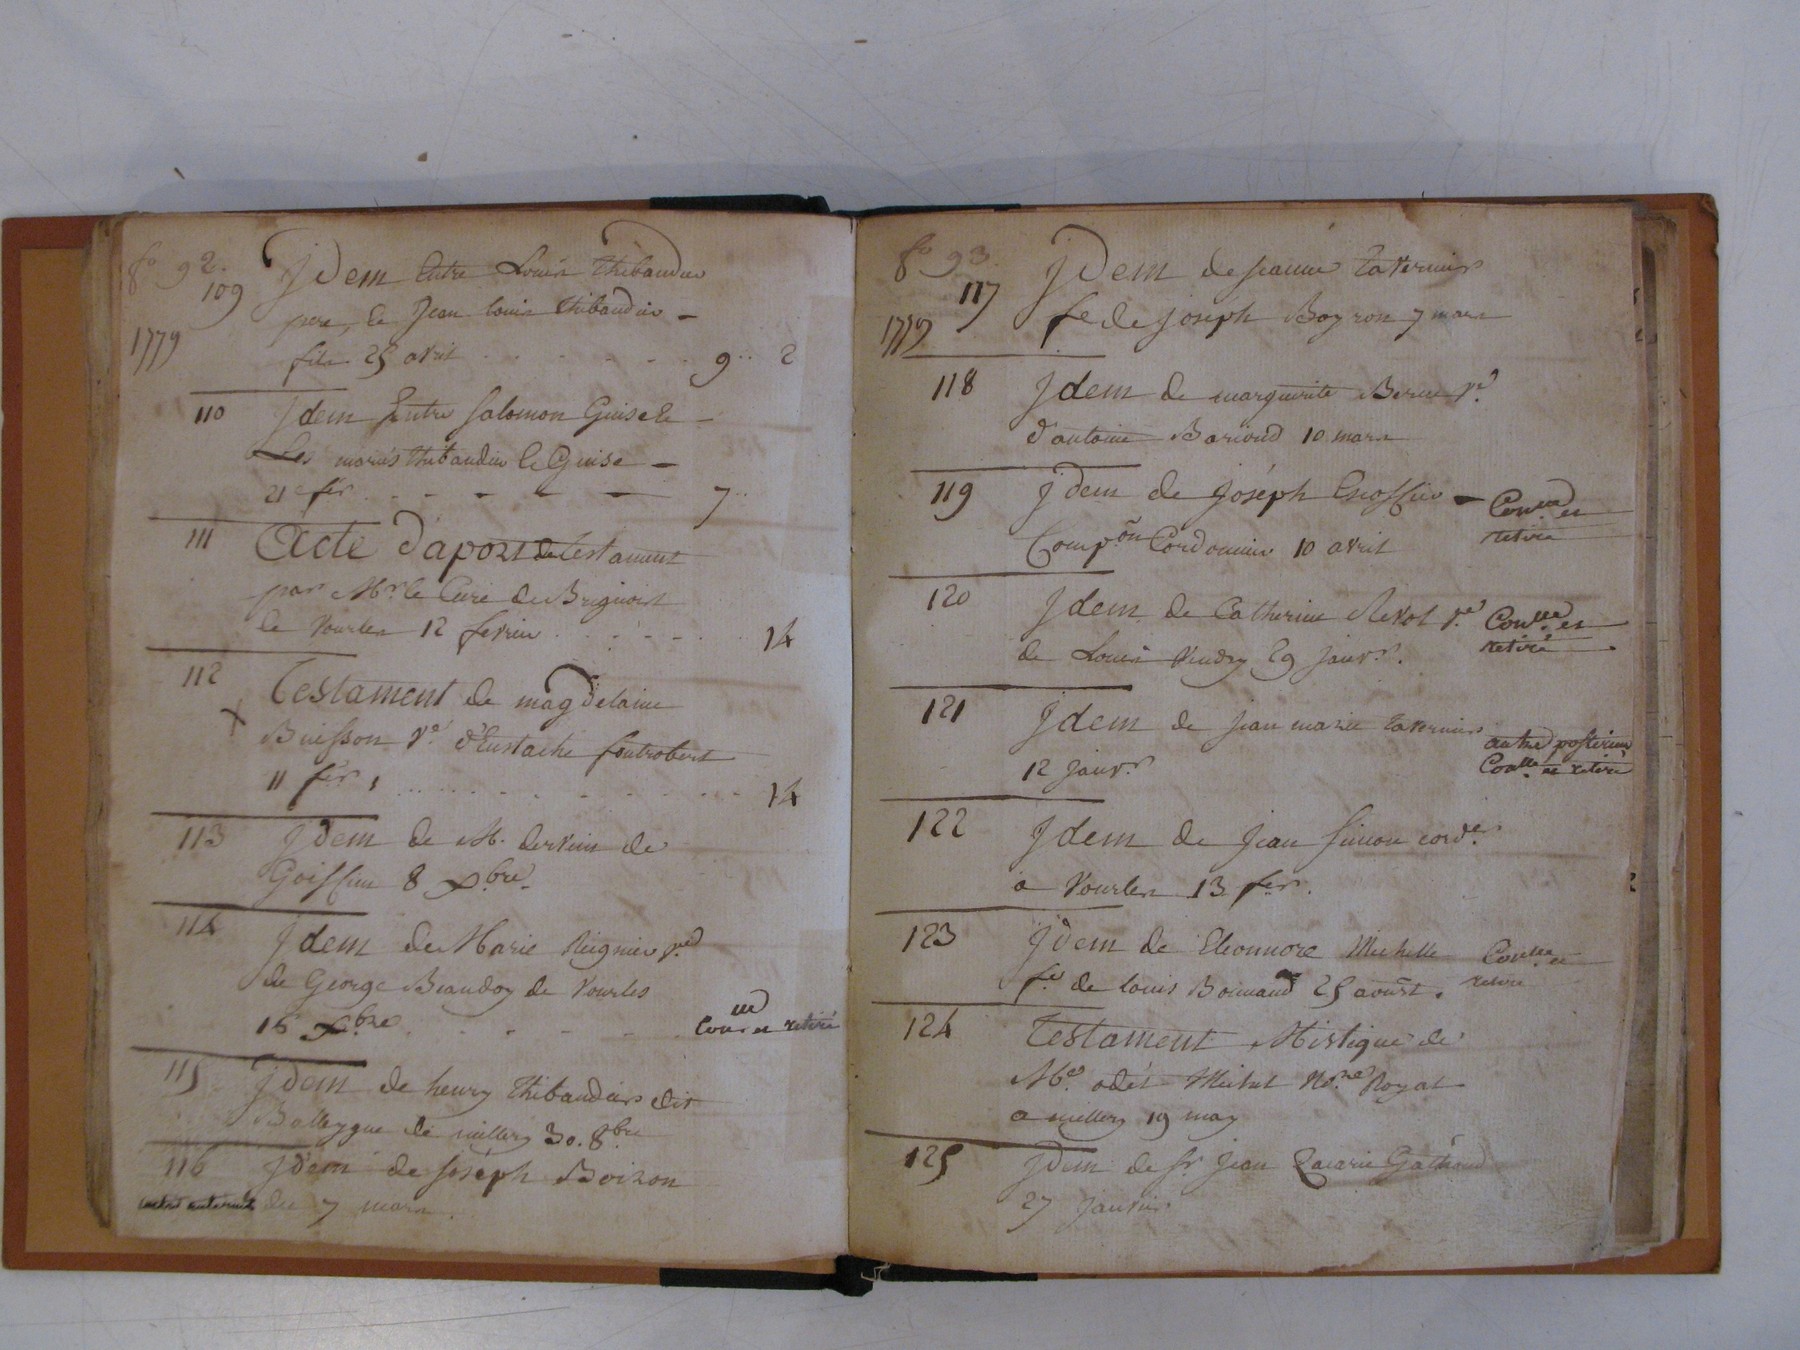 fo 92.
109 Jdem Entre Louis Thibaudier
1779 pere, & Jean Louis Thibaudier -
fils 25 avril 9 2
110 Jdem Entre Salomon Guise &
Les mariés Thibaudier & Guise -
21e fer 7
111 Acte d'aport de Testament
par Mr. le Curé de Brignais
de Vourles 12 fevrier 14
112 Testament de magdelaine
x Buisson ve d'Eustache foutrobert
11 fer 14
113 Jdem de M. dervieu de
Goiffieu 8 Xbre
114 Jdem de Marie Reignier ve
de George Beaudoy de Vourles
16 Xbre et retiré
115 Jdem de henry Thibaudier dit
de millery 30. 8bre
116 Jdem de Joséph Boiron
du 7 mars
fo 93.
117 Jdem de jeanne Tavernier
1779 fe de joséph Boyron 7 mars
118 Jdem de marguerite ve
d'antoine Bariond 10 mars
119 Jdem de joséph - et
Compon Cordonnier 10 avril retiré
120 Jdem de Catherine Revol ve et
de Louis 29 janvr. retiré
121 Jdem de jean marie tavernier
12 janvr autre posterieur
et retiré
122 Jdem de jean simon corder
a Vourles 13 fer.
123 Jdem de Eleonnore Michelle et
fe de louis Boinand 25 aoust. retiré
124 Testament Mistique de
Me. odet Michel Nore Royal
a millery 19 may
125 Jdem de Sr. Jean Zacarie
27 janvier